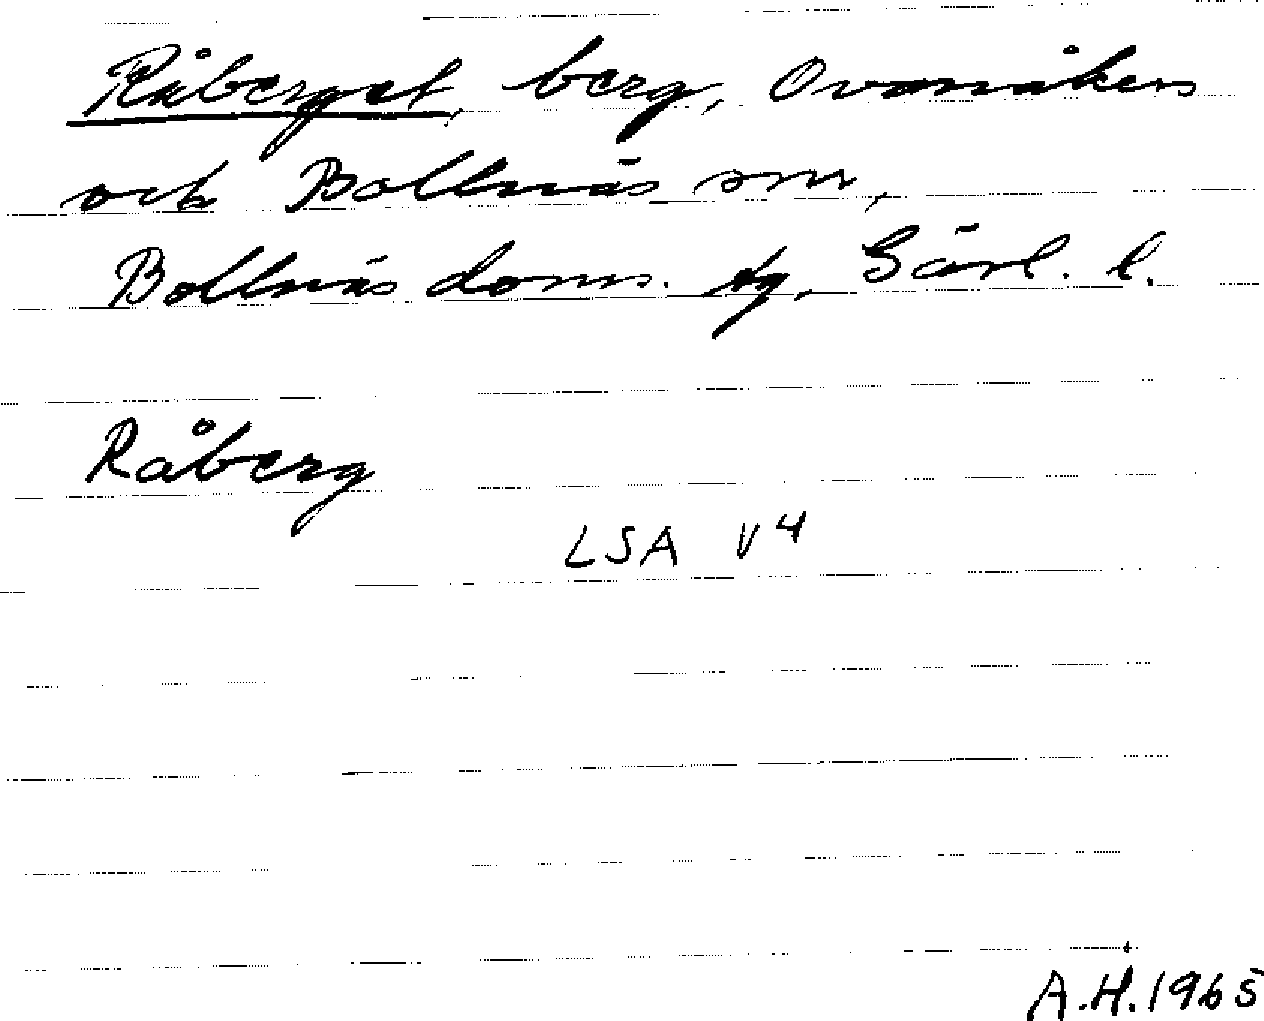 Råberget, berg, Ovanåkers
och Bollnäs snr,
Bollnäs doms. tg, Gävl. l.
Råberg
LSA V4
A.H. 1965